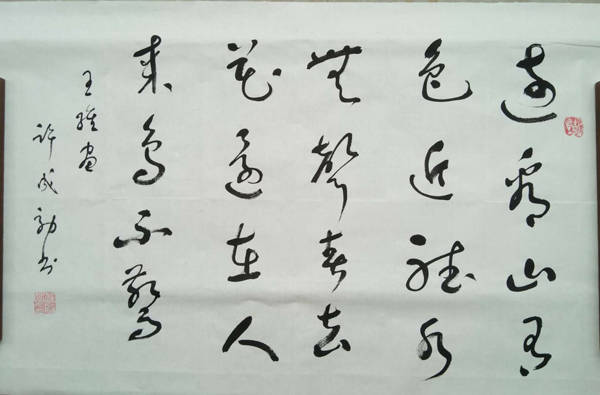 远看山有
色近听水
无声春去
花还在人
来鸟不惊
王维画
许成勋书